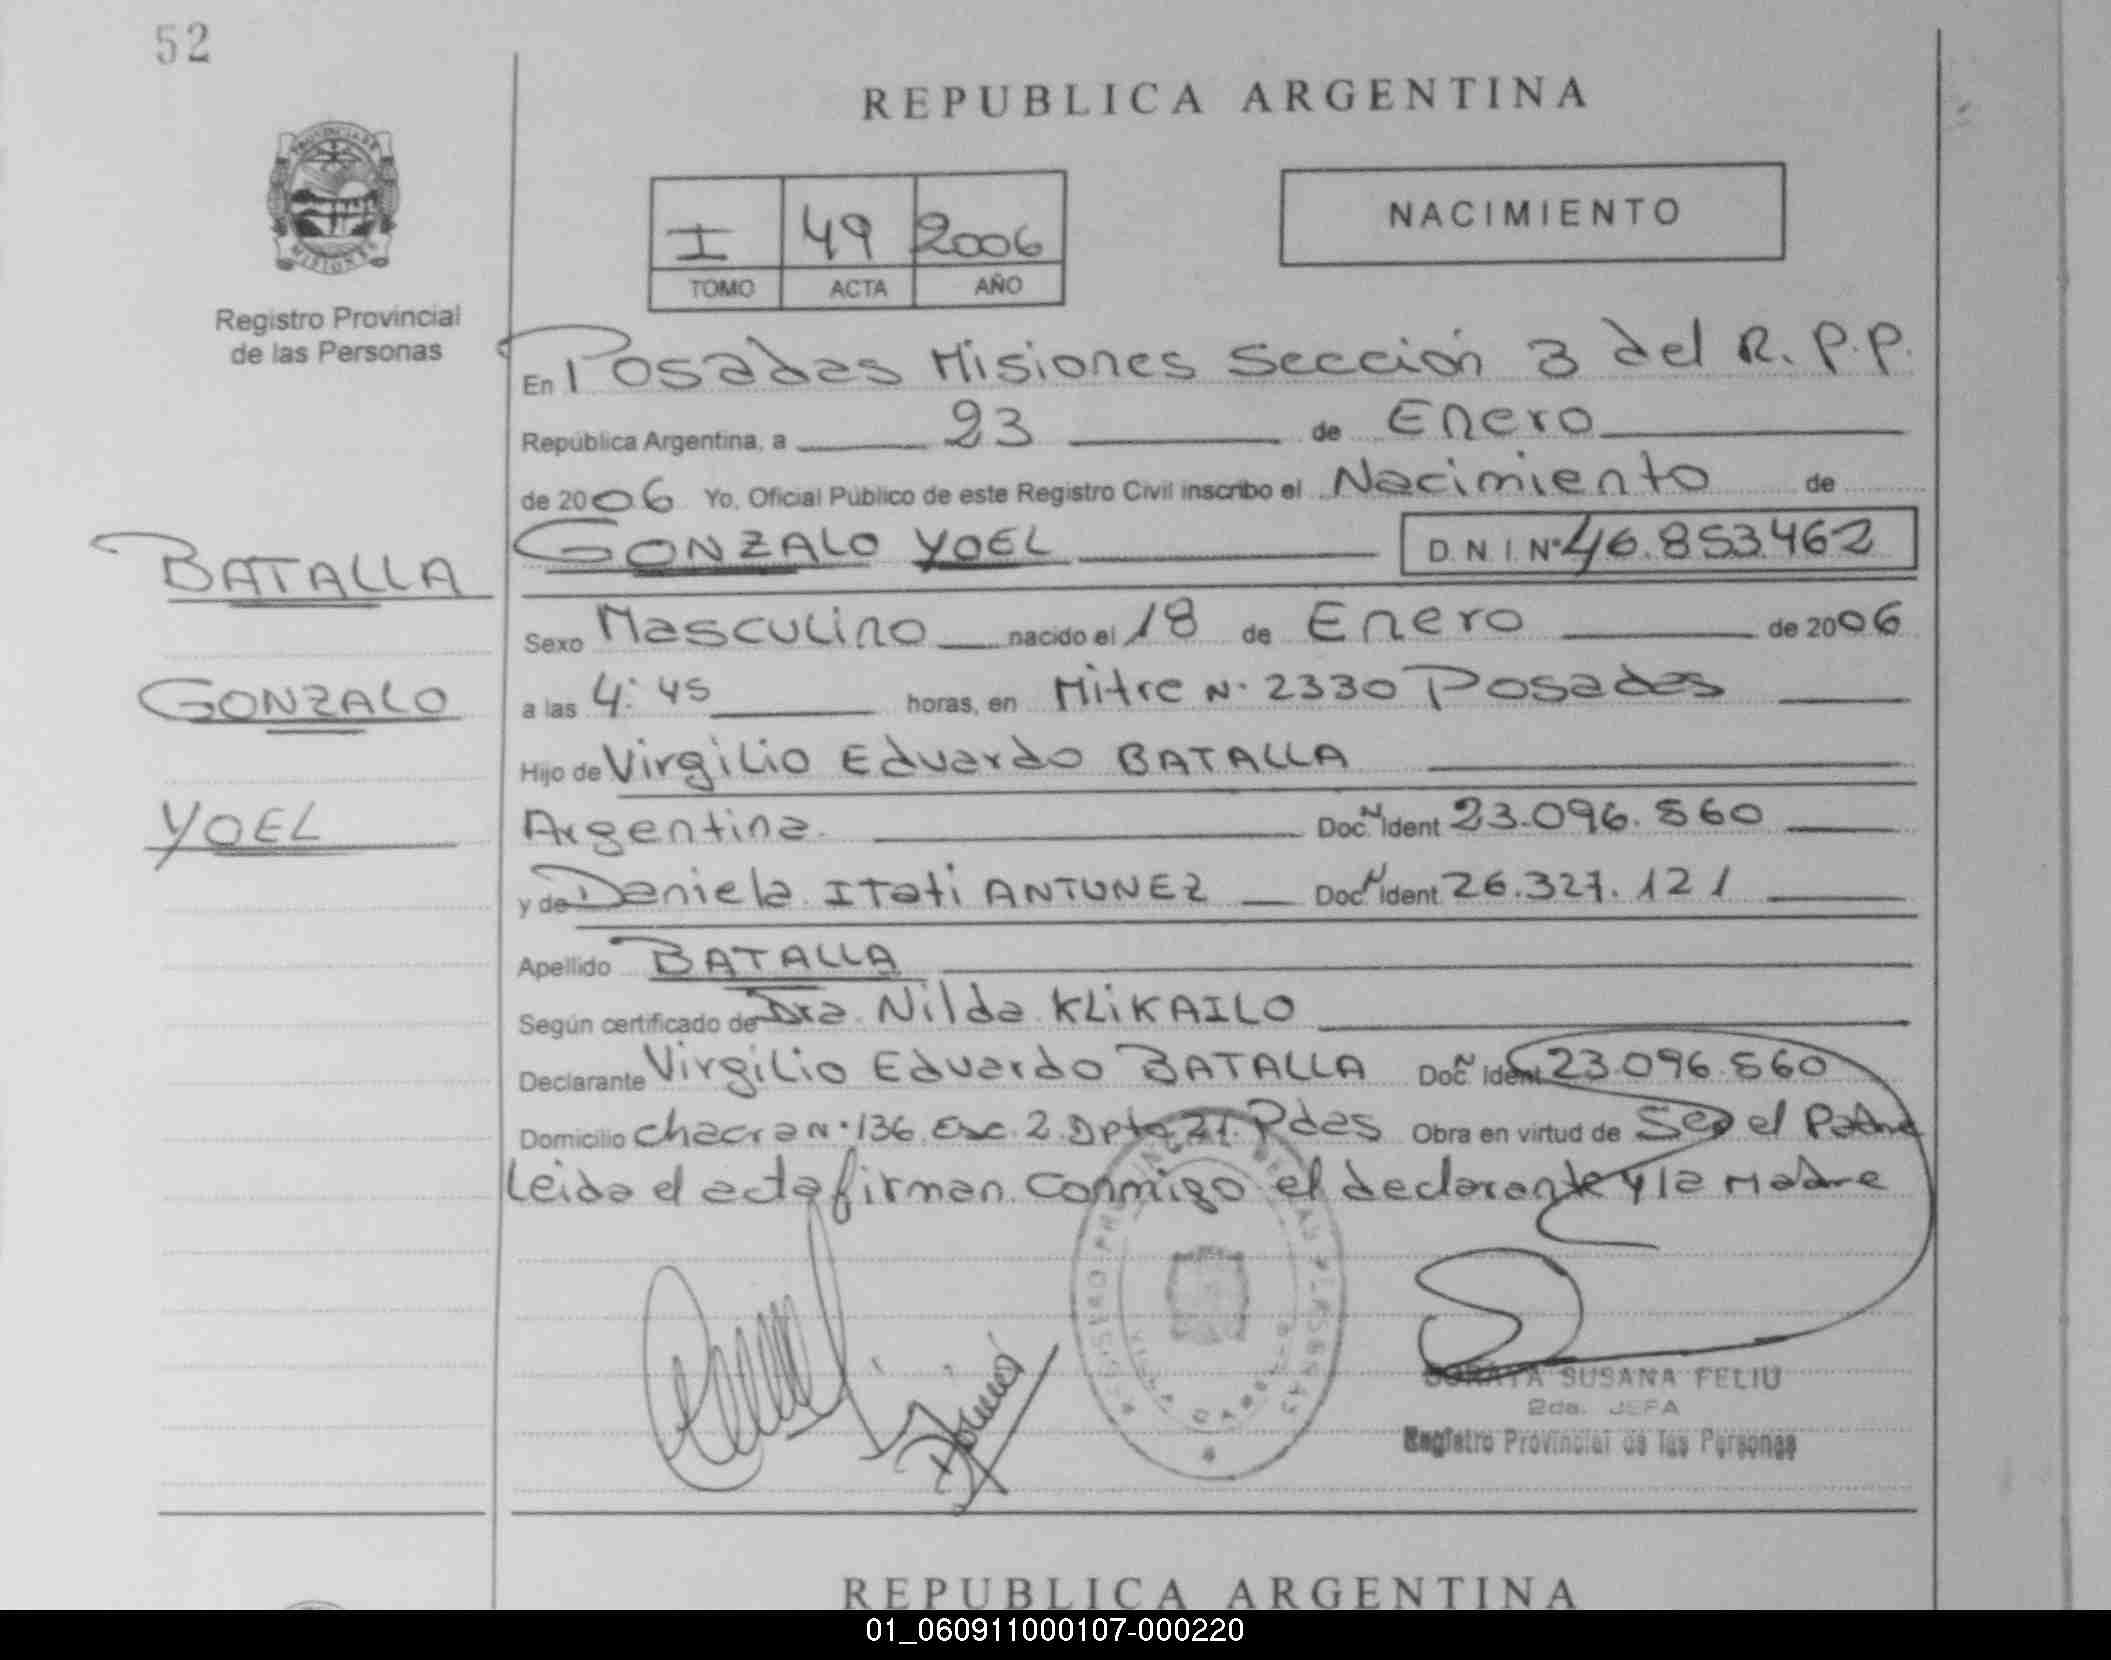 52
REPUBLICA ARGENTINA
PROVINCIA DE
MISIONES
Registro Provincial
de las Personas
I 49 2006
TOMO ACTA AÑO
NACIMIENTO
En Posadas Misiones Sección 3 del R. P. P.
República Argentina, a 23 de Enero
de 2006 Yo, Oficial Público de este Registro Civil inscribo el Nacimiento de
BATALLA
GONZALO YOEL D.N.I. Nº 46.853.462
Sexo Masculino nacido el 18 de Enero de 2006
GONZALO
a las 4:45 horas, en Mitre N· 2330 Posadas
Hijo de Virgilio Eduardo BATALLA
YOEL
Argentina. Doc. N Ident 23.096.560
y de Daniela Itati ANTUNEZ Doc N Ident 26.327.121
Apellido BATALLA
Según certificado de Dra. Nilda KLIKAILO
Declarante Virgilio Eduardo BATALLA Doc. N Ident 23.096.560
Domicilio Chacra N· 136. Esc. 2. Dpto 21. Pdas Obra en virtud de Ser el Padre
Leida el acta firman conmigo el declarante y la Madre
SORAYA SUSANA FELIU
2da. JEFA
Registro Provincial de las Personas
REPUBLICA ARGENTINA
01_060911000107-000220